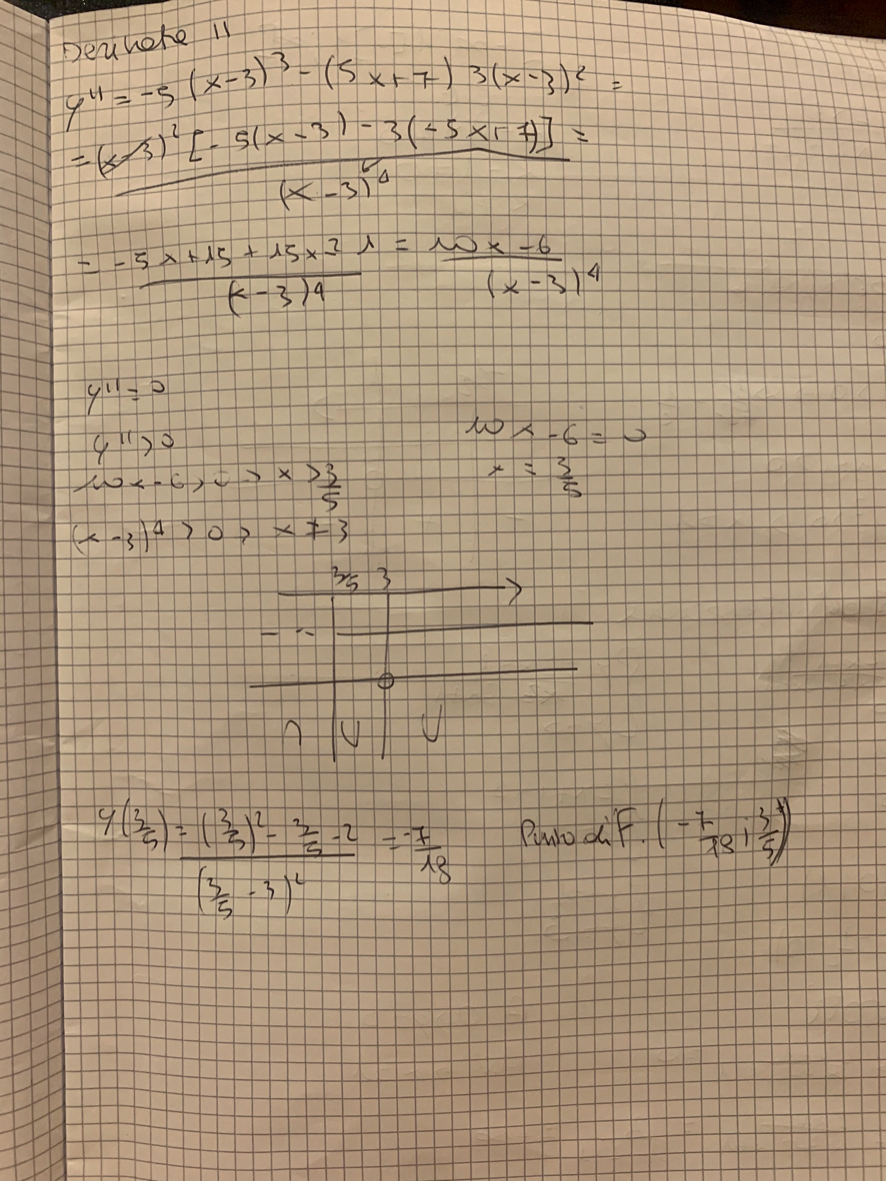 Derivata II
y'' = -5(x-3)³ - (5x+7) 3(x-3)² =
= (x-3)² [-5(x-3) - 3(-5x+7)] =
(x-3)⁶ ⁴
= -5x+15+15x-21 = 10x-6
(x-3)4 (x-3)⁴
y'' = 0
10x-6 = 0
y'' > 0
x = 3/5
10x-6 > 0 > x > 3/5
(x-3)⁴ > 0 > x ≠ 3
3/5 3
∩ ∪ ∪
y(3/5) = (3/5)² - 3/5 - 2 = -7/18 Punto di F. (-7/18 ; 3/5)
(3/5 - 3)²